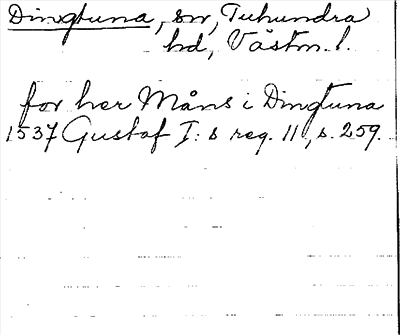 Dingtuna, sn, Tuhundra
hd, Västm. l.
for her Måns i Dingtuna
1537 Gustaf I:s reg. 11, s. 259.